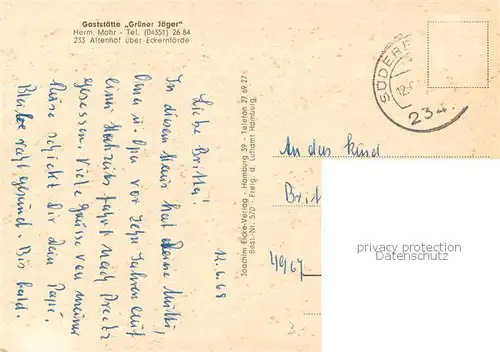 Gaststätte „Grüner Jäger"
Herm. Mohr - Tel. (04351) 26 84
233 Altenhof über Eckernförde
12.6.68
Liebe Britta!
In diesem Haus hat Deine Mutti,
Oma u. Opa vor zehn Jahren auf
einer Hochzeitsfahrt nach Preetz
gegessen. Viele Grüsse von meiner
Reise schickt Dir Dein Papi.
Bleibe recht gesund. Bis bald.
Joachim Eicke-Verlag - Hamburg 39 - Telefon 27 69 27
Best.-Nr. 570 - Freig. d. Luftamt Hamburg
SÜDERB
12.
234
An das Kind
Brit
4967
3.-
privacy protection
Datenschutz